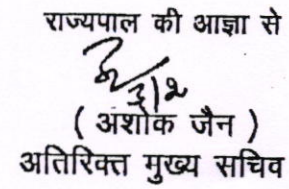 राज्यपाल की आज्ञा से
( अशोक जैन )
अतिरिक्त मुख्य सचिव